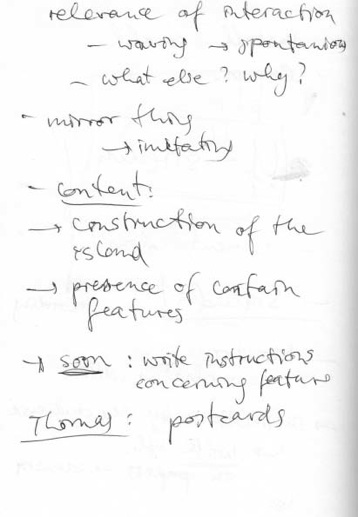 relevance of interaction
- waving → spontanious
- what else? why?
- mirror thing
→ imitating
- content:
→ construction of the
island
→ presence of certain
features
→ soon : write instructions
concerning feature
Thomas : postcards